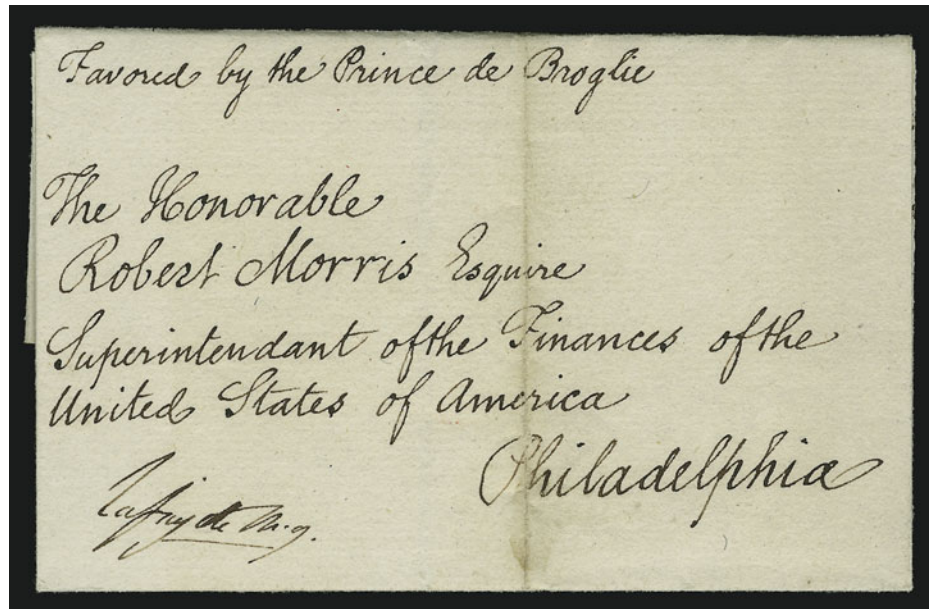 Favored by the Prince de Broglie
The Honorable
Robert Morris Esquire
Superintendant of the Finances of the
United States of America
Philadelphia
Lafayette M.g.